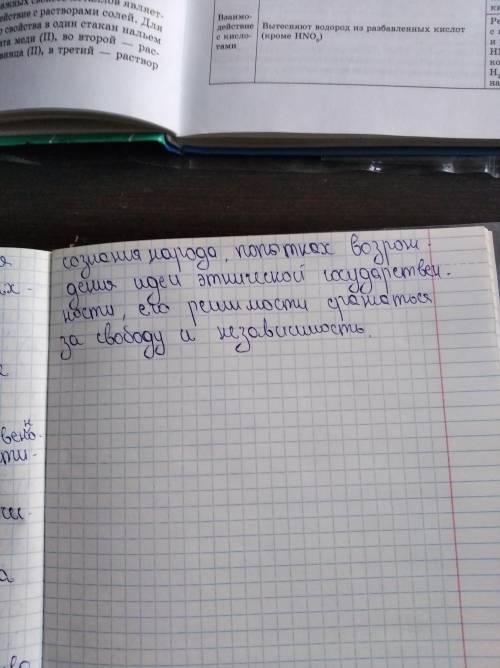 ажных свойств металлов являет-
действие с растворами солей. Для
свойства в один стакан нальем
та меди (II), во второй — рас-
винца (II), в третий — раствор
Взаимо-
действие
с кисло-
тами
Вытесняют водород из разбавленных кислот
(кроме HNO₃)
сознания народа, попытках возрож
дения идеи этнической государствен-
ности, его решимости сражаться
за свободу и независимость.